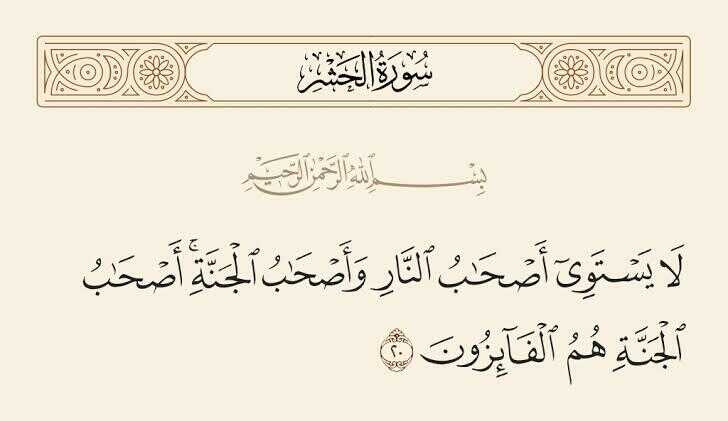 سُورَةُ الحَشْرِ
بِسْمِ ٱللَّهِ ٱلرَّحْمَٰنِ ٱلرَّحِيمِ
لَا يَسْتَوِىٓ أَصْحَٰبُ ٱلنَّارِ وَأَصْحَٰبُ ٱلْجَنَّةِ ۚ أَصْحَٰبُ
ٱلْجَنَّةِ هُمُ ٱلْفَآئِزُونَ ٢٠